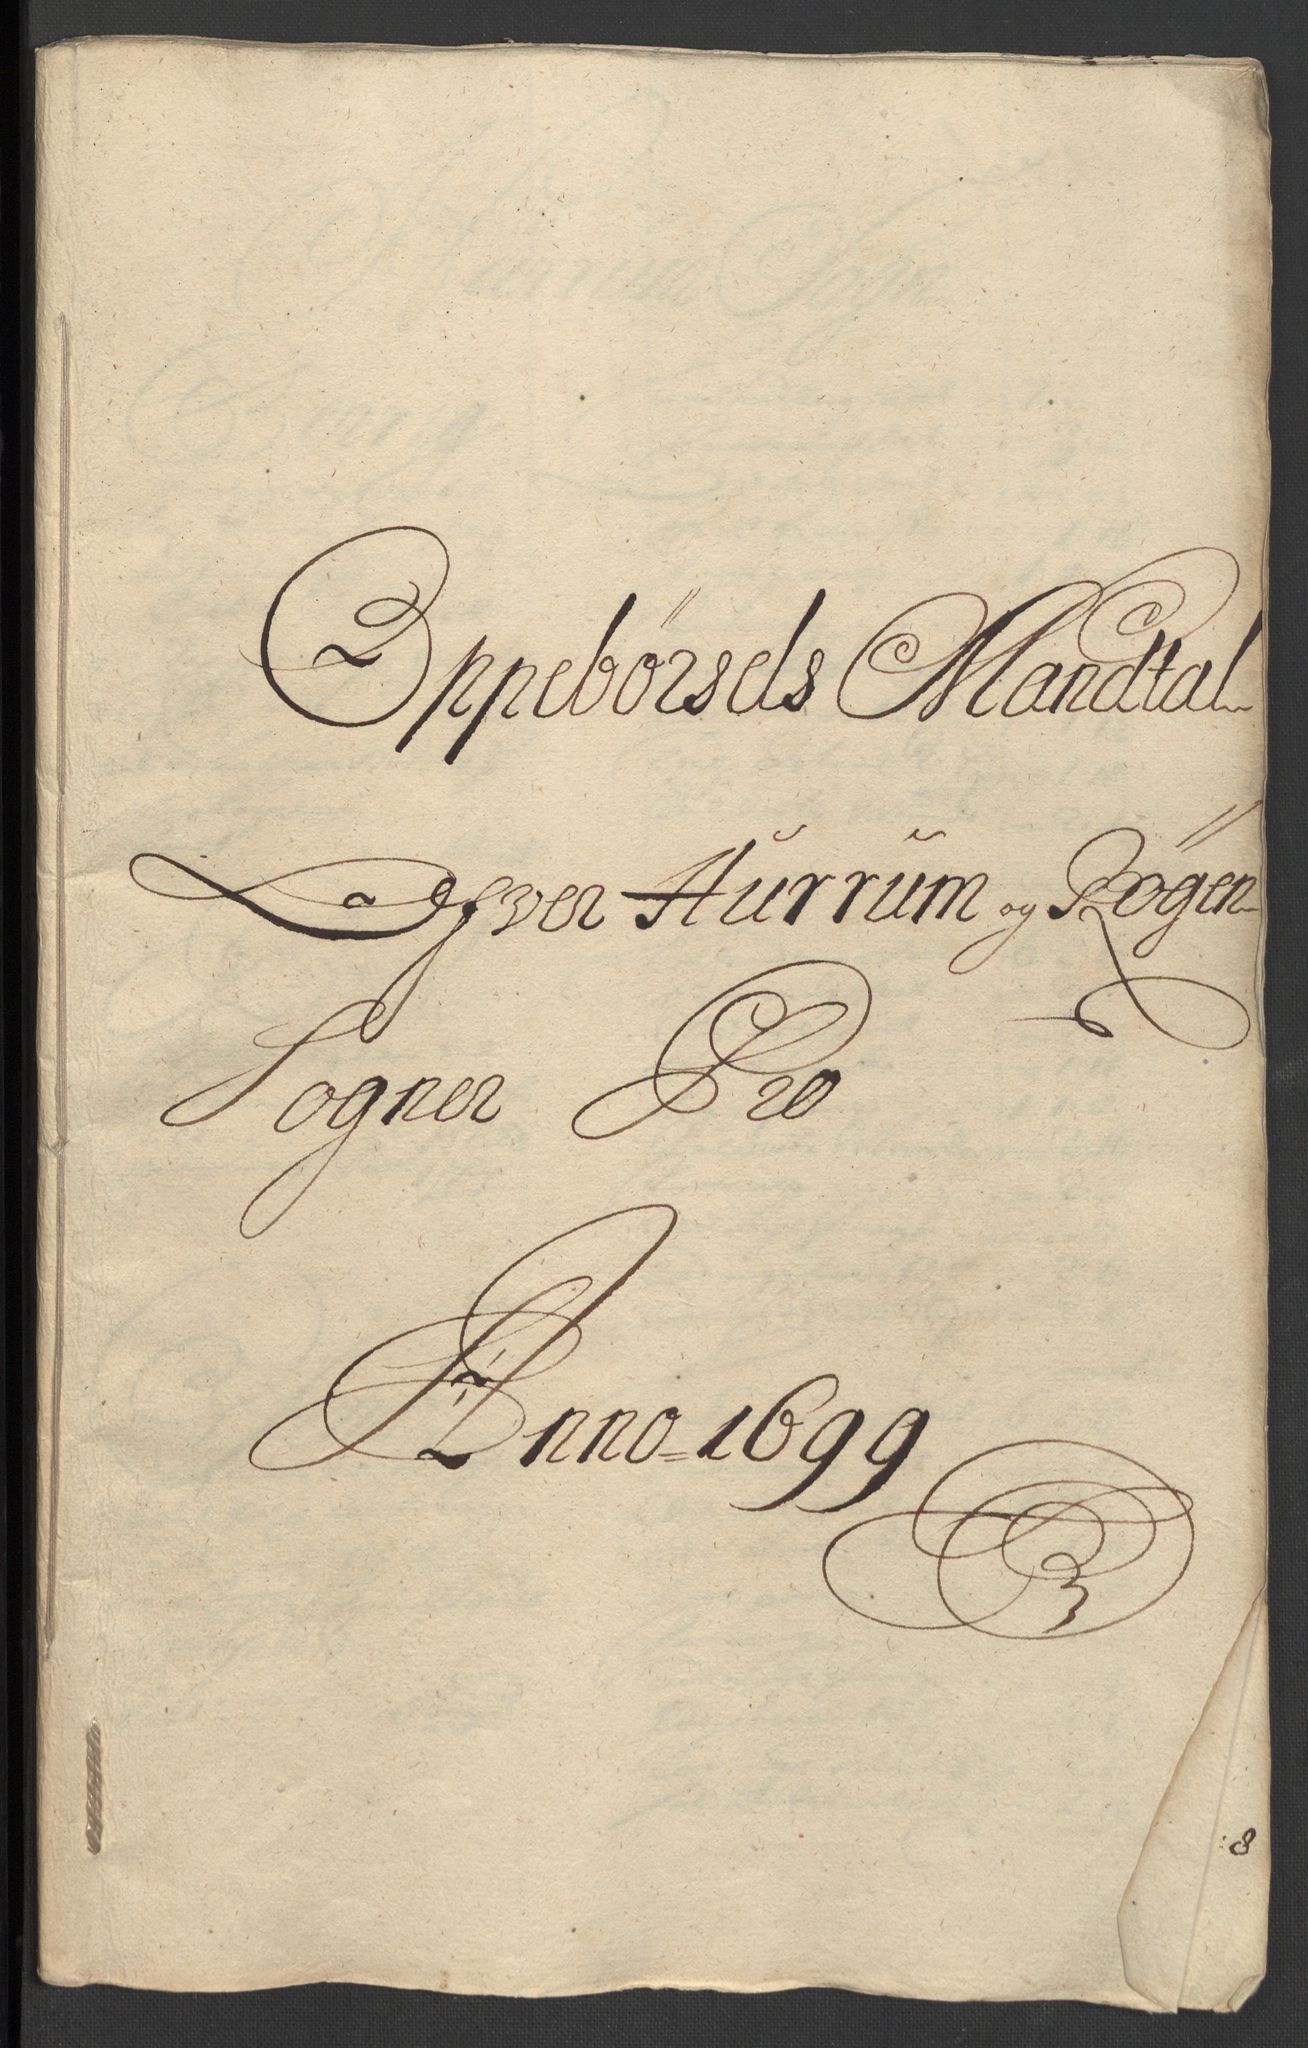 Oppebörsels Mandtal
Ofver Hurrum og Rögen
Sogner Pro
Anno = 1699
:8